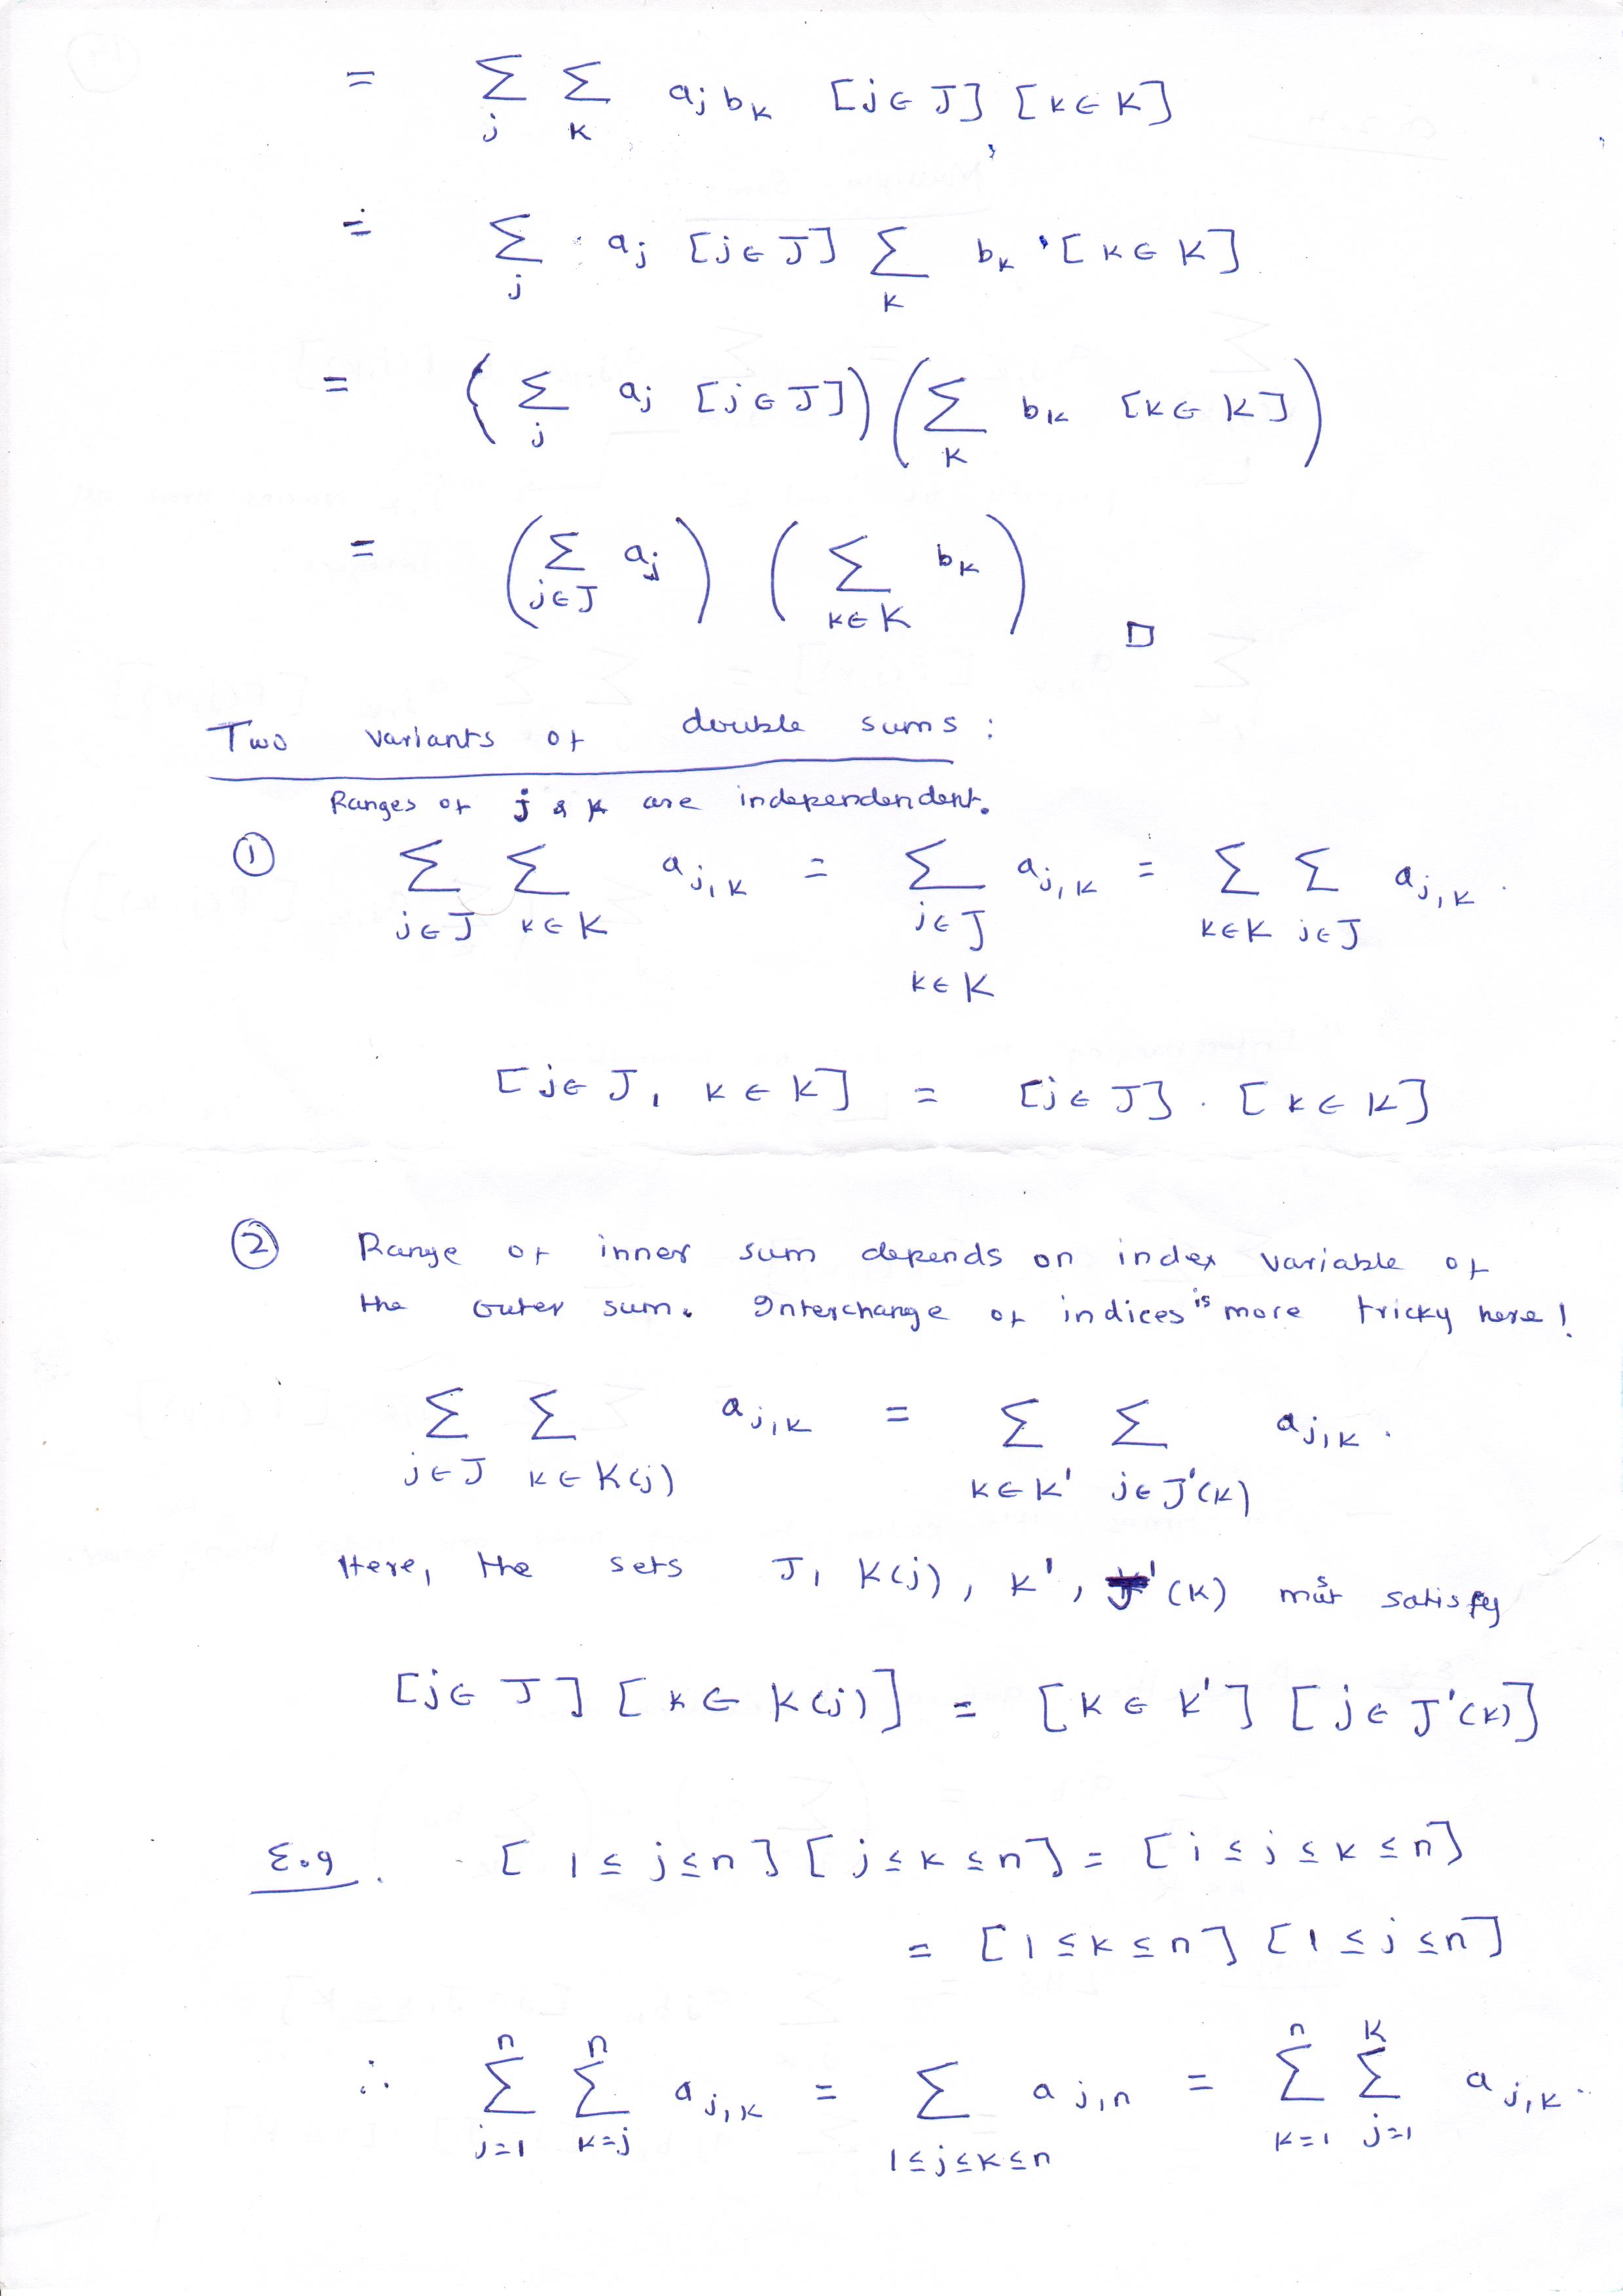 = Σ_j Σ_k a_j b_k [j ∈ J] [k ∈ K]
= Σ_j a_j [j ∈ J] Σ_k b_k [k ∈ K]
= (Σ_j a_j [j ∈ J]) (Σ_k b_k [k ∈ K])
= (Σ_{j∈J} a_j) (Σ_{k∈K} b_k) □
Two variants of double sums :
Ranges of j & k are independendent.
① Σ_{j∈J} Σ_{k∈K} a_{j,k} = Σ_{j∈J k∈K} a_{j,k} = Σ_{k∈K} Σ_{j∈J} a_{j,k} .
[j ∈ J, k ∈ K] = [j ∈ J] . [k ∈ K]
② Range of inner sum depends on index variable of
the outer sum. Interchange of indices is more tricky here!
Σ_{j∈J} Σ_{k∈K(j)} a_{j,k} = Σ_{k∈K'} Σ_{j∈J'(k)} a_{j,k} .
Here, the sets J, K(j), K', J'(k) must satisfy
[j ∈ J] [k ∈ K(j)] = [k ∈ K'] [j ∈ J'(k)]
E.g. [1 ≤ j ≤ n] [j ≤ k ≤ n] = [i ≤ j ≤ k ≤ n]
= [1 ≤ k ≤ n] [1 ≤ j ≤ n]
∴ Σ_{j=1}^{n} Σ_{k=j}^{n} a_{j,k} = Σ_{1≤j≤k≤n} a_{j,n} = Σ_{k=1}^{n} Σ_{j=1}^{k} a_{j,k} .